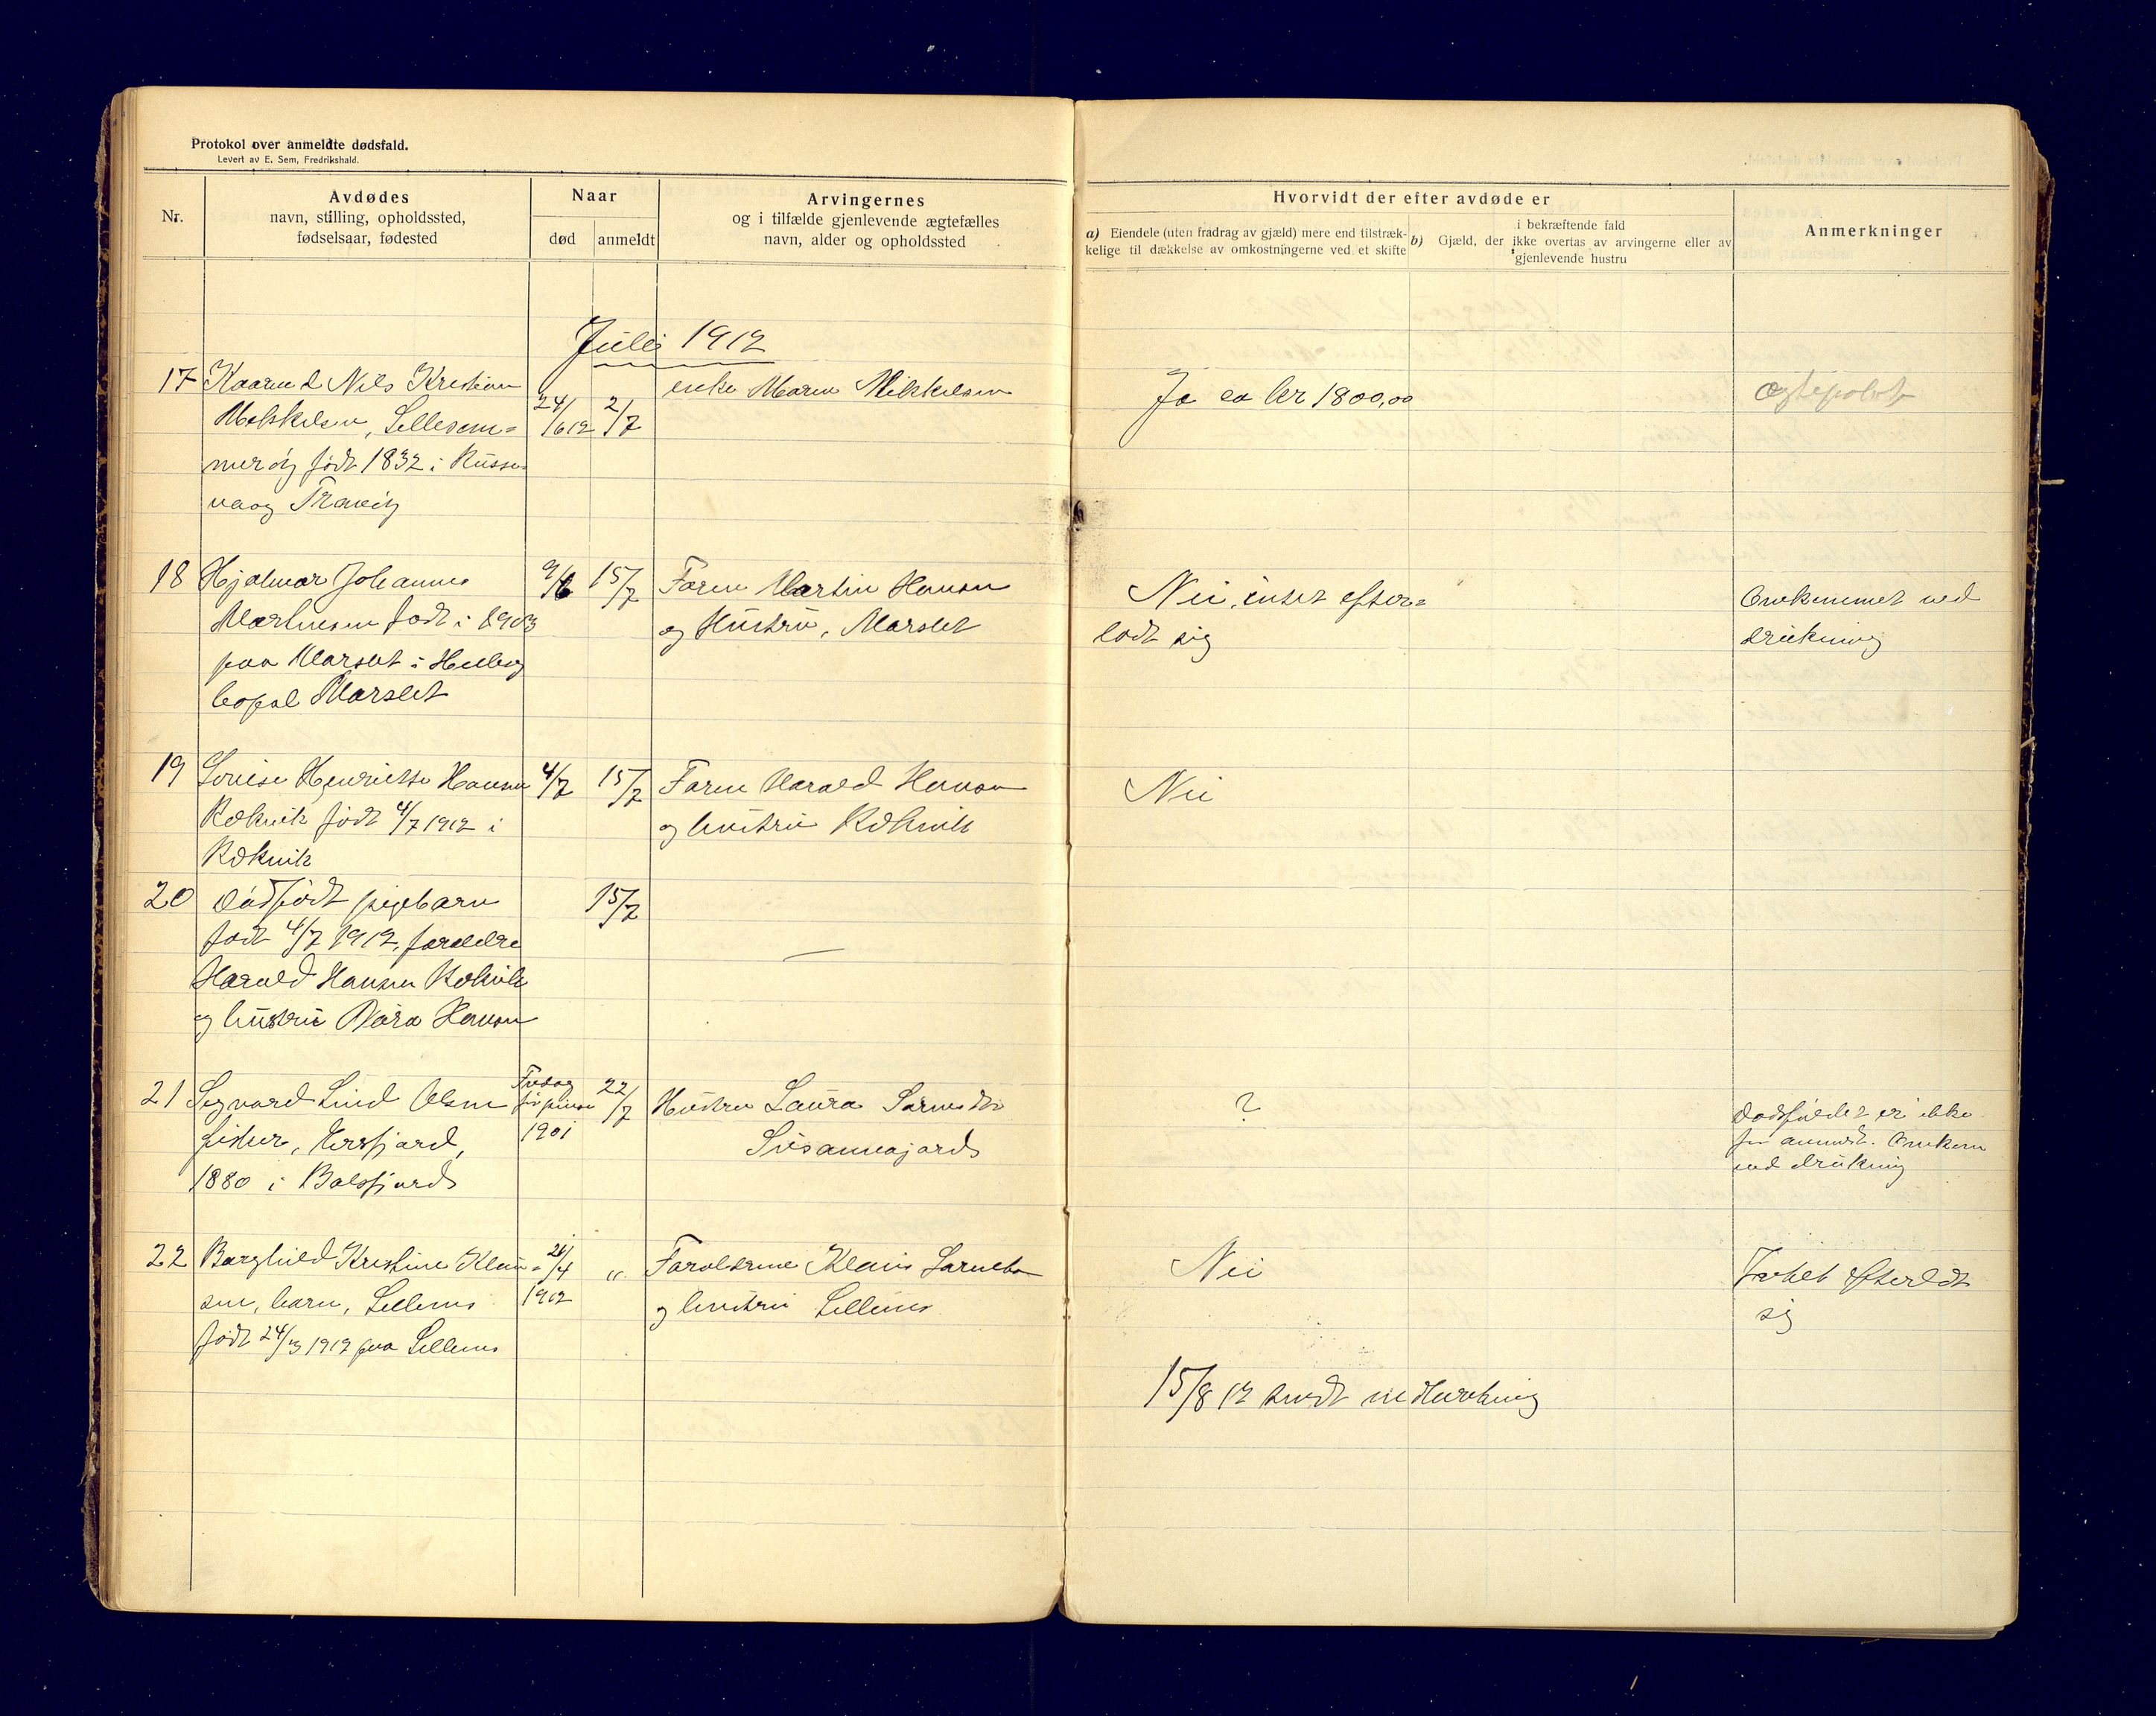 Protokol over anmeldte dødsfald.
Levert av E. Sem, Fredrikshald.
Nr.
Avdødes
navn, stilling, opholdssted,
fødselsaar, fødested
Naar
død
anmeldt
Arvingernes
og i tilfælde gjenlevende ægtefælles
navn, alder og opholdssted
Hvorvidt der efter avdøde er
a) Eiendele (uten fradrag av gjæld) mere end tilstræk-
kelige til dækkelse av omkostningerne ved et skifte
i bekræftende fald
b) Gjæld, der ikke overtas av arvingerne eller av
gjenlevende hustru
Anmerkninger
Juli 1912
17 Kaarmd Nils Kristian 24/6 12 2/7 enke Maren Mikkelsen Ja ca kr 1800,00
Mikkelsen, Lillesom=
merøy født 1832 i Russe-
vaag
18 Hjalmar Johannes 9/6 15/7 Faren Martin Hansen Nei, intet efter=
Martinsen født i 1903 og Hustru, Marslet lodt sig
paa Marslet i Hellesø
bopæl Marslet
Omkommet ved
drukning
19 Louise Henriette Hansen 4/7 15/7 Faren Harald Hansen Nei
Rækvik født 4/7 1912 i og hustru Rækvik
Rækvik
20 Dødfødt pigebarn 15/7
født 4/7 1912, forældre
Harald Hansen Rækvik
og hustru Dora Hansen
21 Sigvard Lind Olsen Fredag før pinse 1901 22/7 Hustru Laura ?
fisker, Kersfjord, Susannajord
1880 i Balsfjord
Dødsfaldet er ikke
før anmeldt. Omkom
ved drukning
22 Borghild Kristine Klau- 21/4 1912 " Forældrene Klaus Nei
sen, barn, Lillenes og hustru Lillenes
født 24/3 1912 paa Lillenes
Intet efterlodt
sig
15/8 12 sendt indberetning